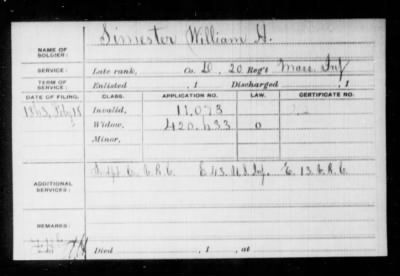 NAME OF SOLDIER: Simester William H.
SERVICE: Late rank, Co. D, 20 Reg't Mass. Inf
TERM OF SERVICE: Enlisted , 1 Discharged , 1
DATE OF FILING. CLASS. APPLICATION NO. LAW. CERTIFICATE NO.
1863, July 18 Invalid, 11,073
Widow, 420,633 0
Minor,
ADDITIONAL SERVICES: C. V. R. C. E. 43, U.S. Inf. E. 13, V. R. C.
REMARKS:
Died , 1 , at